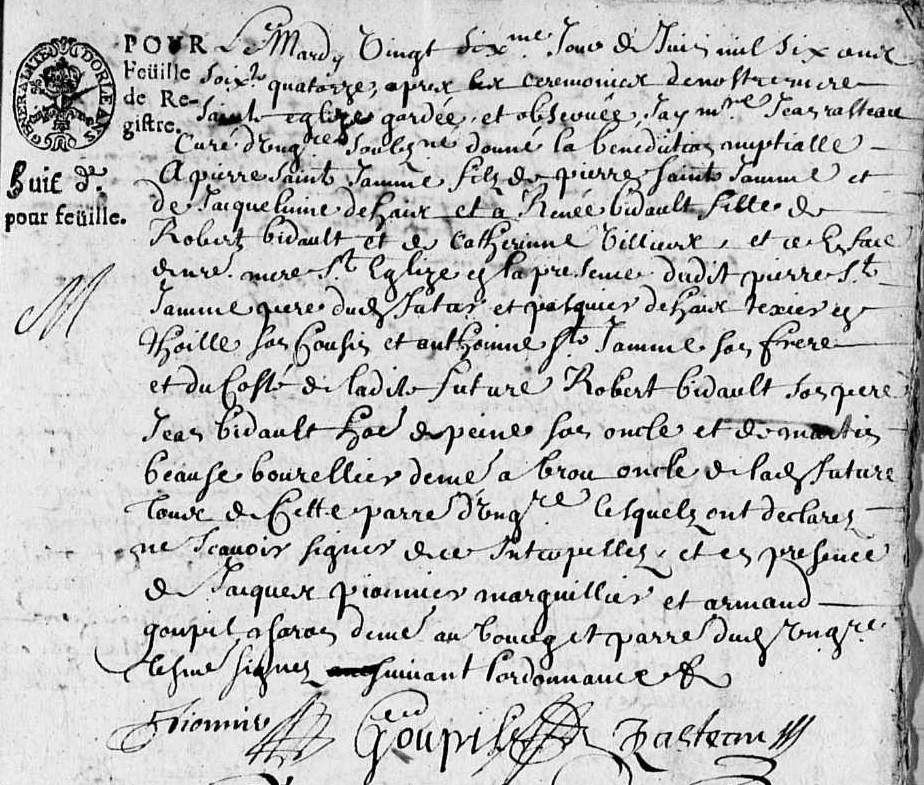 GENERALITE D'ORLEANS
POUR
Feüille
de Re-
gistre.
huit d.
pour feüille.
Le Mardy Vingt six.me Jour de Juin mil six cens
soix.te quatorze apres les ceremonies de nostre mere
Sainte eglize gardée et obseruée, Jay m.re Jean rasteau
Curé d'ung.re soubs.né donné la benediction nuptialle
A pierre saint Jamme fils de pierre saint Jamme et
de Jacquelinne dehaix et a Renée bidault fille de
Robert bidault et de Catherinne Villiers, et ce en face
de nre. mere S.te Eglize en la presence dudit pierre S.t
Jamme pere dud. futur et pasquier dehaix texier en
thoille son Cousin et anthoinne S.t Jamme son frere
et du Costé de ladite future Robert bidault son pere
Jean bidault ho.e de peine son oncle et de martin
beause bourellier deme. a brou oncle de lad. future
tous de Cette parre. d'ung.re lesquels ont declarez
ne scauoir signer de ce Interpellez, et en presence
de Jacques pionnier marguillier et armand
goupil charon deme. au bourg et parre. dud. ung.re
signez suiuant lordonnance
Pionnier Goupil Rasteau